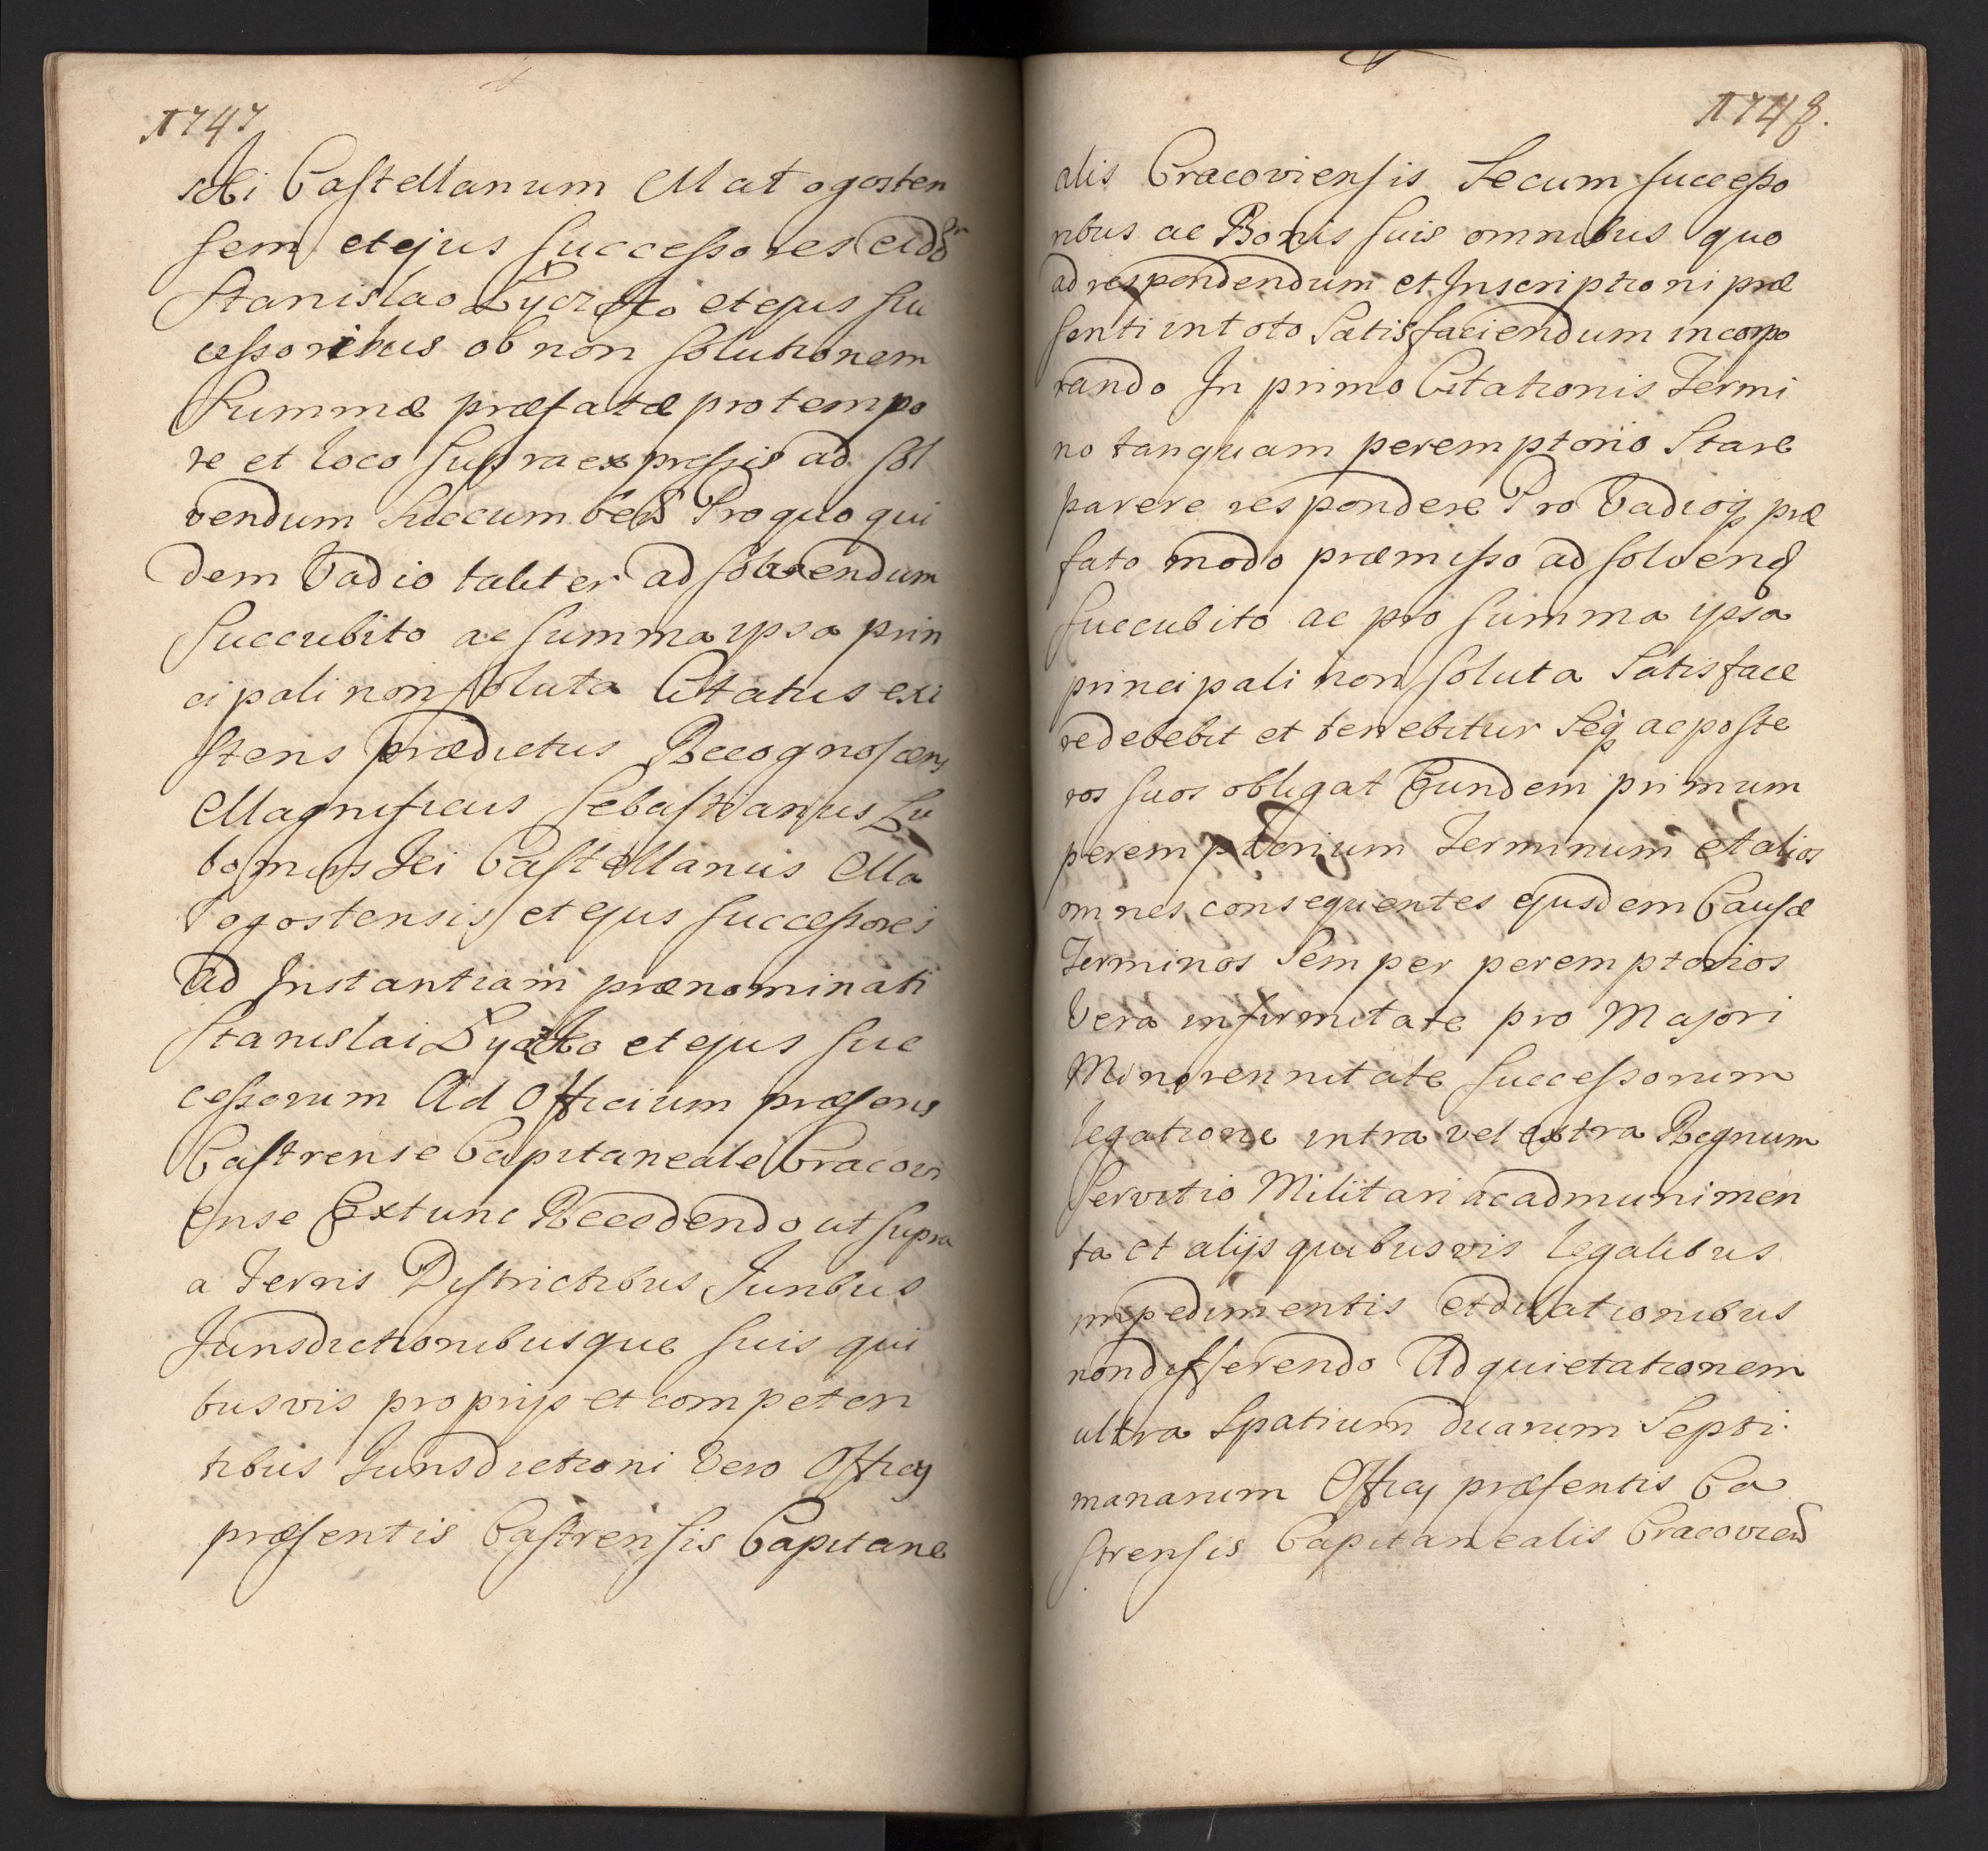 1747
ski Castellanum Malogosten
sem et ejus Successores eid
Stanislao Lycżko et ejus Suc
cessoribus ob non Solutionem
Summæ præfatæ pro tempo
re et loco Supra expressis ad Sol
vendum Succumben Pro quo qui
dem Vadio taliter ad Solvendum
Succubito ac Summa ipsa prin
cipali non Soluta Citatus exi
stens prædictus Recognoscens
Magnificus Sebastianus Lu
bomirs Kei Castellanus Ma
logostensis et ejus Successores
ad Instantiam prænominati
Stanislai Lyczko et ejus Suc
cessorum Ad Officium præsens
Castrense Capitaneale Cracovi
ense Extunc Recedendo ut Supra
a Terris Districtibus Juribus
Jurisdictionibusque Suis qui
busvis proprijs et competen
tibus Jurisdictioni Vero Officij
præsentis Castrensis Capitane
1748.
alis Cracoviensis Secum Successo
ribus ac Bonis Suis omnibus quo
ad respondendum et Inscriptioni præ
senti in toto Satisfaciendum incorpo
rando In primo Citationis Termi
no tanquam peremptorio Stare
parere respondere Pro Vadioq præ
fato modo præmisso ad Solvend
Succubito ac pro Summa ipsa
principali non Soluta Satisface
re debebit et tenebitur Seq ac poste
ros Suos obligat Eundem primum
peremptorium Terminum et alios
omnes consequentes ejusdem Causæ
Terminos Semper peremptorios
Vera infirmitate pro Majori
Minorennitate Successorum
legatione intra vel extra Regnum
Servitio Militari ac admunimen
ta et alijs quibusvis legalibus
impedimentis et dilationibus
non differendo Ad quietationem
ultra Spatium duarum Septi:
manarum Officij præsentis Ca
strensis Capitanealis Cracovien